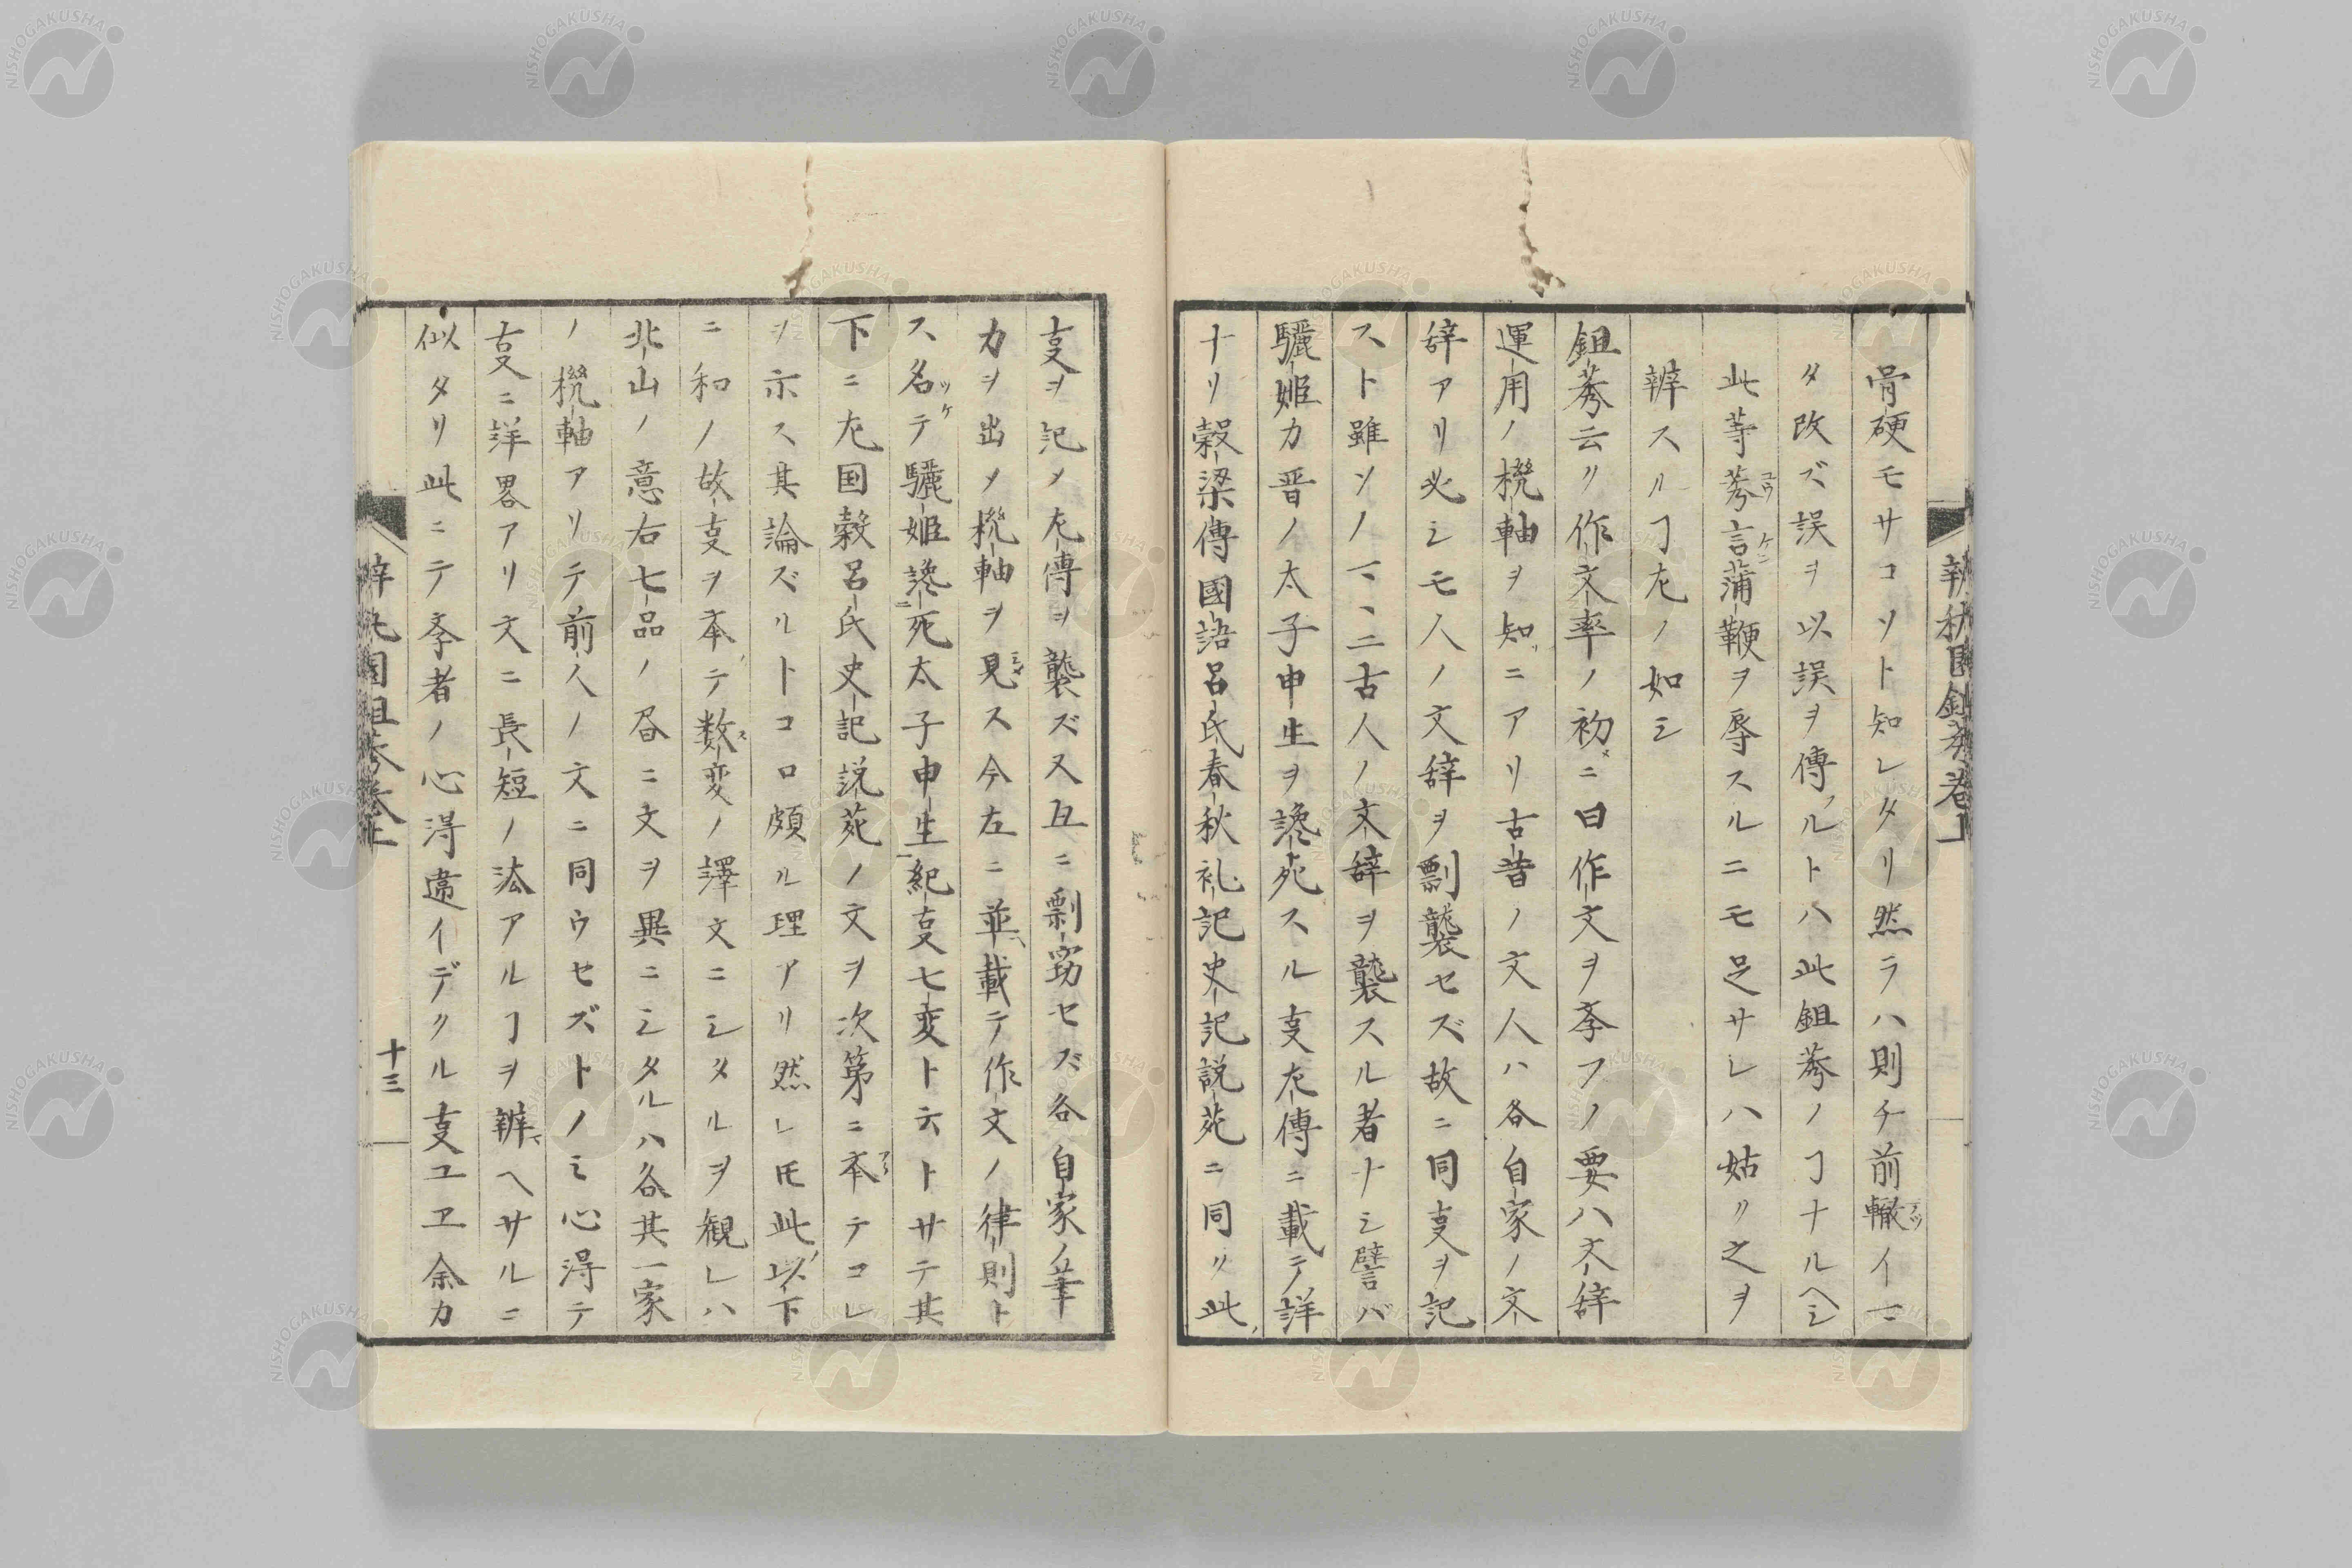 骨硬モサコソト知レタリ然ラハ則チ前轍イマ
タ改ズ誤ヲ以誤ヲ傳フルトハ此鉏莠ノ𬼀ナルヘシ
此等莠言蒲鞭ヲ辱スルニモ足サレハ姑ク之ヲ
辨スルヿ左ノ如シ
鉏莠云ク作文率ノ初メニ曰作文ヲ斈フノ要ハ文辞
運用ノ機軸ヲ知ニアリ古昔ノ文人ハ各自家ノ文
辞アリ必シモ人ノ文辞ヲ剽襲セズ故ニ同叓ヲ記
スト雖ソノマヽニ古人ノ文辞ヲ襲スル者ナシ譬バ
驪姫カ晋ノ太子申生ヲ讒死スル叓左傳ニ載テ詳
ナリ穀梁傳國語呂氏春秋礼記史記説苑ニ同ク此
叓ヲ記メ左傳ヲ襲ズ又互ニ剽窃セズ各自家ノ筆
力ヲ出メ機軸ヲ見ス今左ニ並載テ作文ノ律則ト
ス名テ驪姫讒死太子申生紀叓七変ト云トサテ其
下ニ左国穀呂氏史記説苑ノ文ヲ次第ニ本テコレ
ヲ示ス其論ズルトコロ頗ル理アリ然レ𪜈此以下
ニ和ノ故叓ヲ本テ数変ノ譯文ニシタルヲ観レハ
北山ノ意右七品ノ昏ニ文ヲ異ニシタルハ各其一家
ノ機軸アリテ前人ノ文ニ同ウセズトノミ心得テ
叓ニ詳畧アリ文ニ長短ノ法アルヿヲ辨ヘサルニ
似タリ此ニテ斈者ノ心得違イデクル叓ユヱ余カ
十三
NISHOGAKUSHA